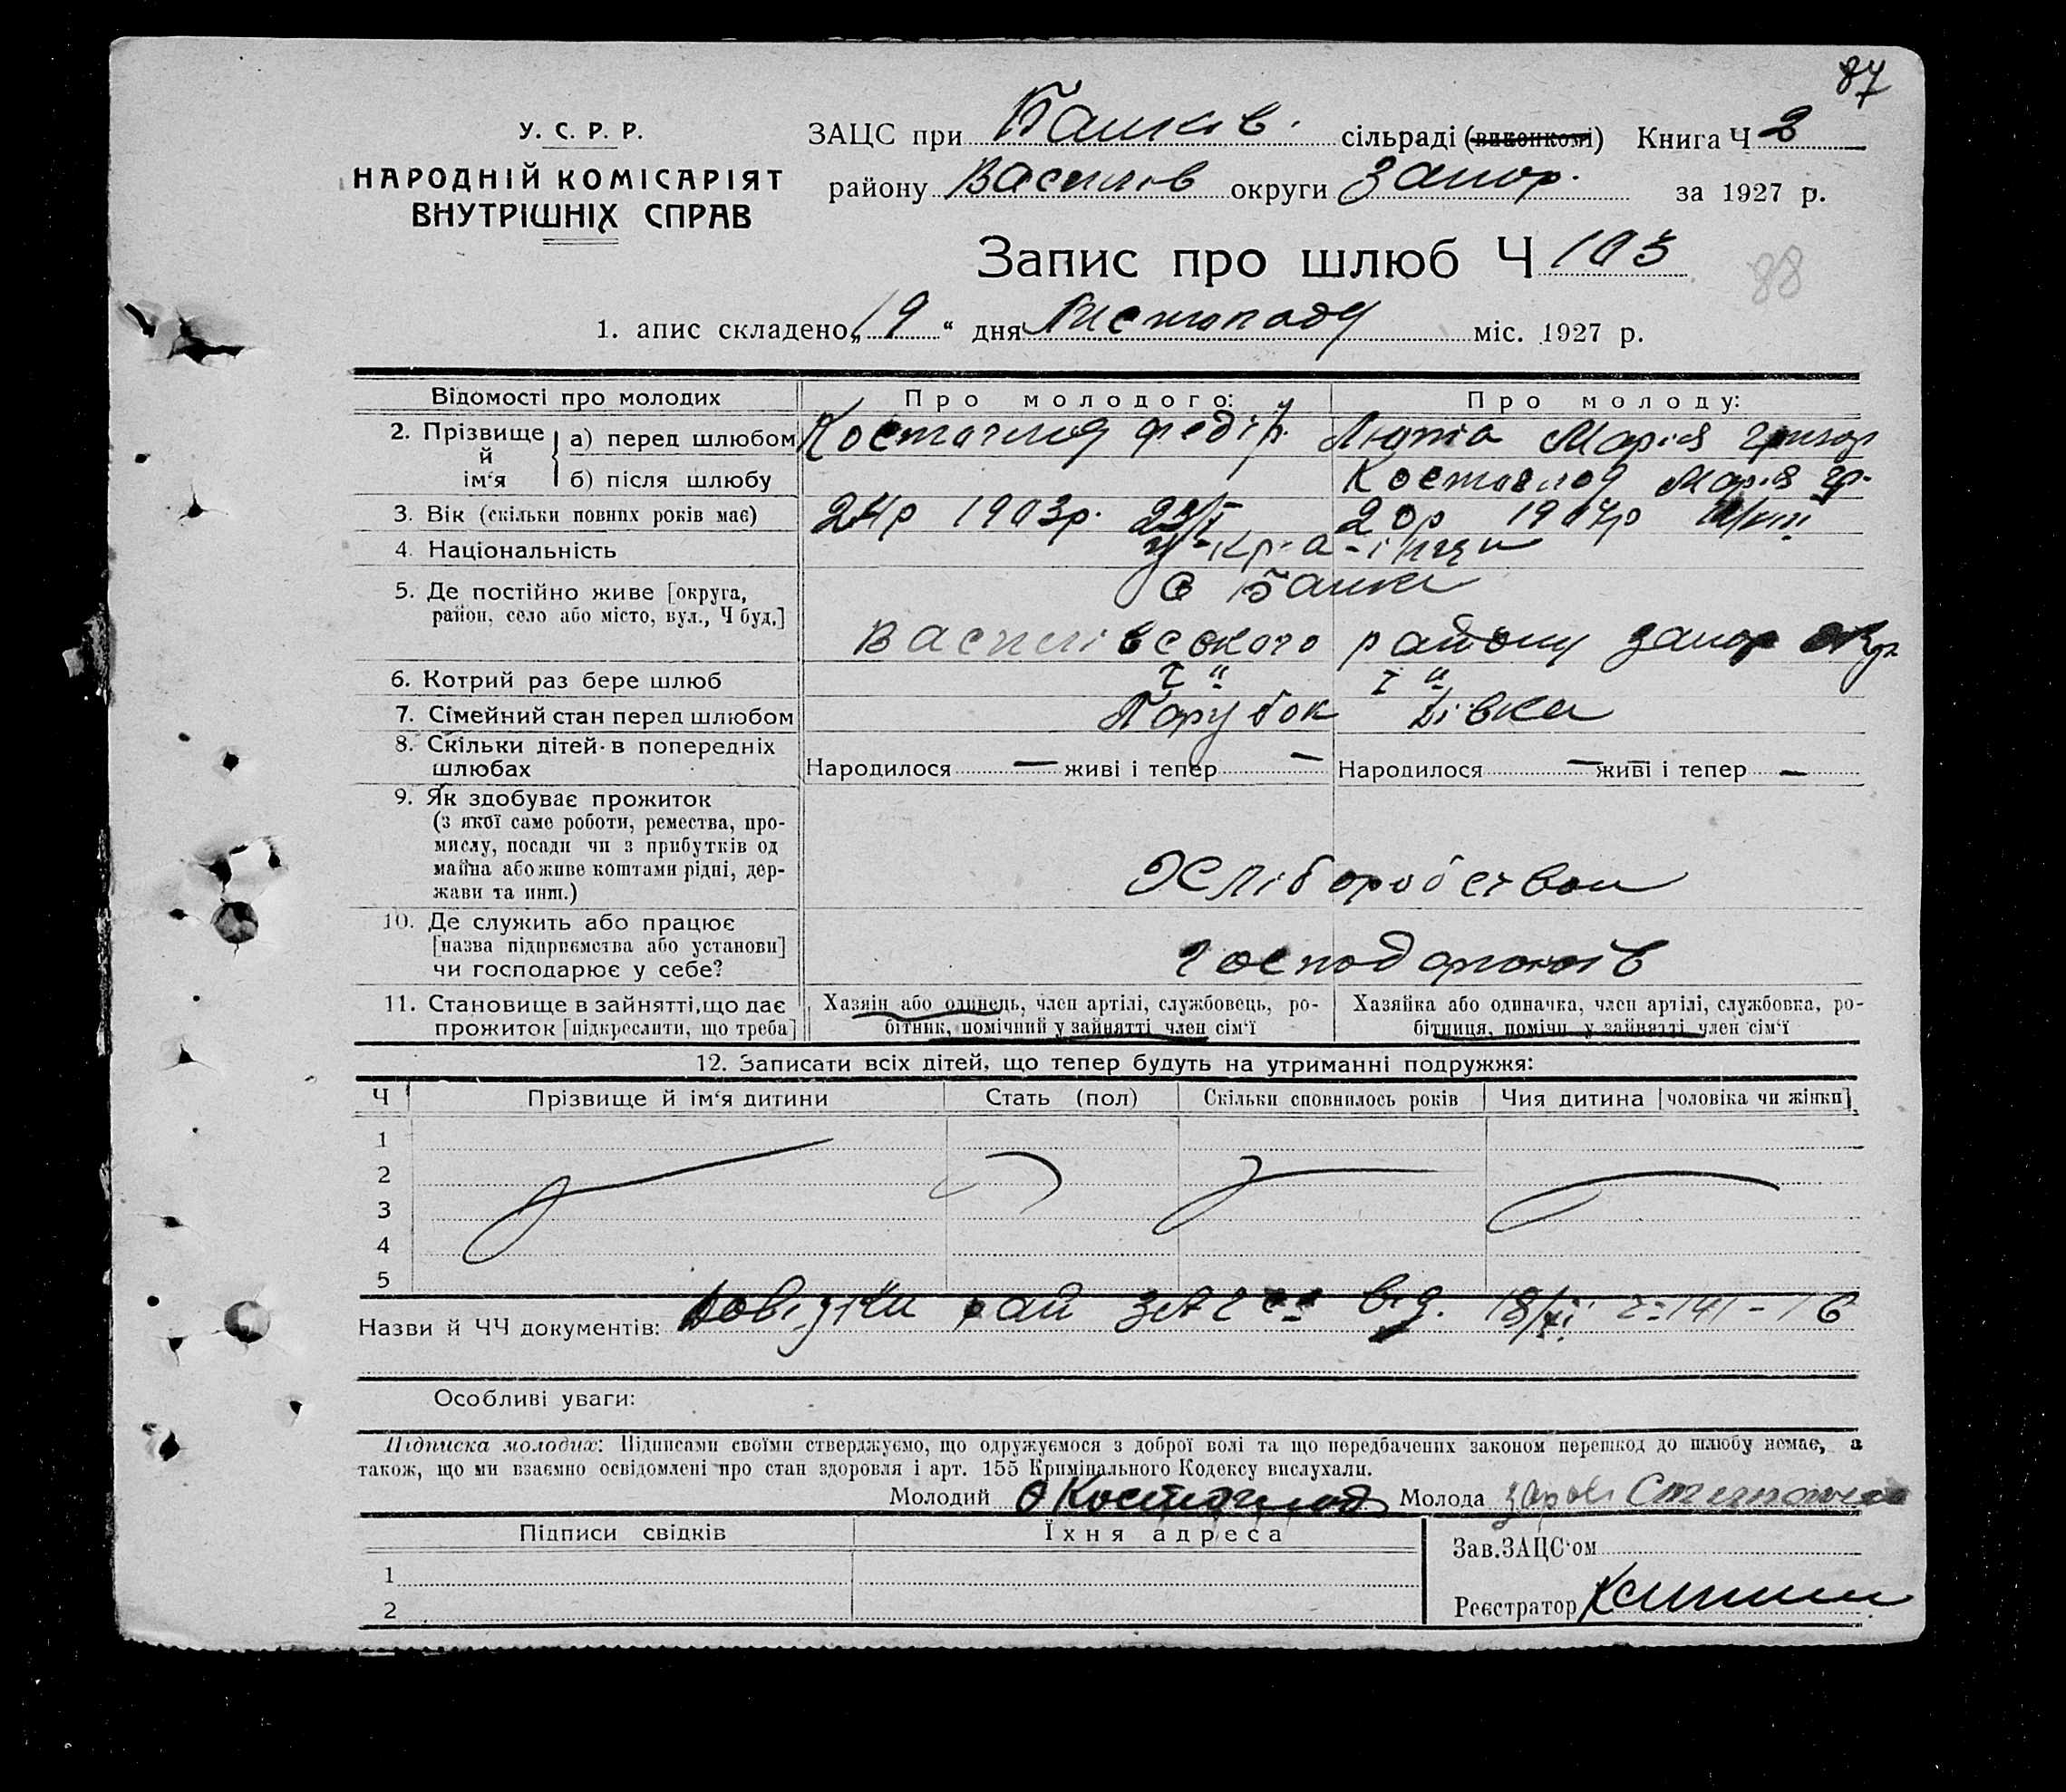 87
У. С. Р. Р.
НАРОДНІЙ КОМІСАРІЯТ
ВНУТРІШНІХ СПРАВ
ЗАЦС при Балків. сільраді (виконкомі) Книга Ч 2
району Василів округи Запор. за 1927 р.
Запис про шлюб Ч 103
88
1. апис складено „19“ дня Листопаду міс. 1927 р.
Відомості про молодих Про молодого: Про молоду:
2. Прізвище й ім‘я а) перед шлюбом Костоглод Федір. Люта Марія Григор
б) після шлюбу Костоглод Марія Гр.
3. Вік (скільки повних років має) 24р 1903р. 20р 1907р
4. Національність у-кр-а-інци
5. Де постійно живе [округа, район, село або місто, вул., Ч буд.] с Балки
Василівського району Запор окр
6. Котрий раз бере шлюб І " І "
7. Сімейний стан перед шлюбом Парубок Дівка
8. Скільки дітей в попередніх шлюбах Народилося — живі і тепер — Народилося — живі і тепер —
9. Як здобуває прожиток
(з якої саме роботи, ремества, про-
мислу, посади чи з прибутків од
майна або живе коштами рідні, дер-
жави та инш.) Хліборобством
10. Де служить або працює
[назва підприємства або установи]
чи господарює у себе? Господарюють
11. Становище в зайнятті, що дає прожиток [підкреслити, що треба]
Хазяін або одинець, член артілі, службовець, ро-
бітник, помічний у зайнятті член сім‘ї
Хазяйка або одиначка, член артілі, службовка, ро-
бітниця, помічн. у зайнятті член сім‘ї
12. Записати всіх дітей, що тепер будуть на утриманні подружжя:
Ч Прізвище й ім‘я дитини Стать (пол) Скільки сповнилось років Чия дитина [чоловіка чи жінки]
1
2
3
4
5
Назви й ЧЧ документів: Довідки рай ЗАГСа від. 18/XI
Особливі уваги:
Підписка молодих: Підписами своїми стверджуємо, що одружуємося з доброї волі та що передбачених законом перешкод до шлюбу немає, а
також, що ми взаємно освідомлені про стан здоровля і арт. 155 Кримінального Кодексу вислухали.
Молодий Ф Костоглод Молода
Підписи свідків Їхня адреса
Зав. ЗАЦС‘ом
1
Реєстратор
2